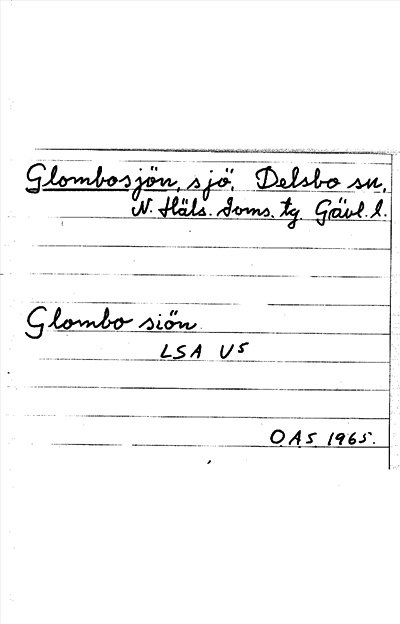 Glombosjön, sjö, Delsbo sn,
N. Häls. doms. tg. Gävl. l.
Glombo siön
LSA U5
OAS 1965.